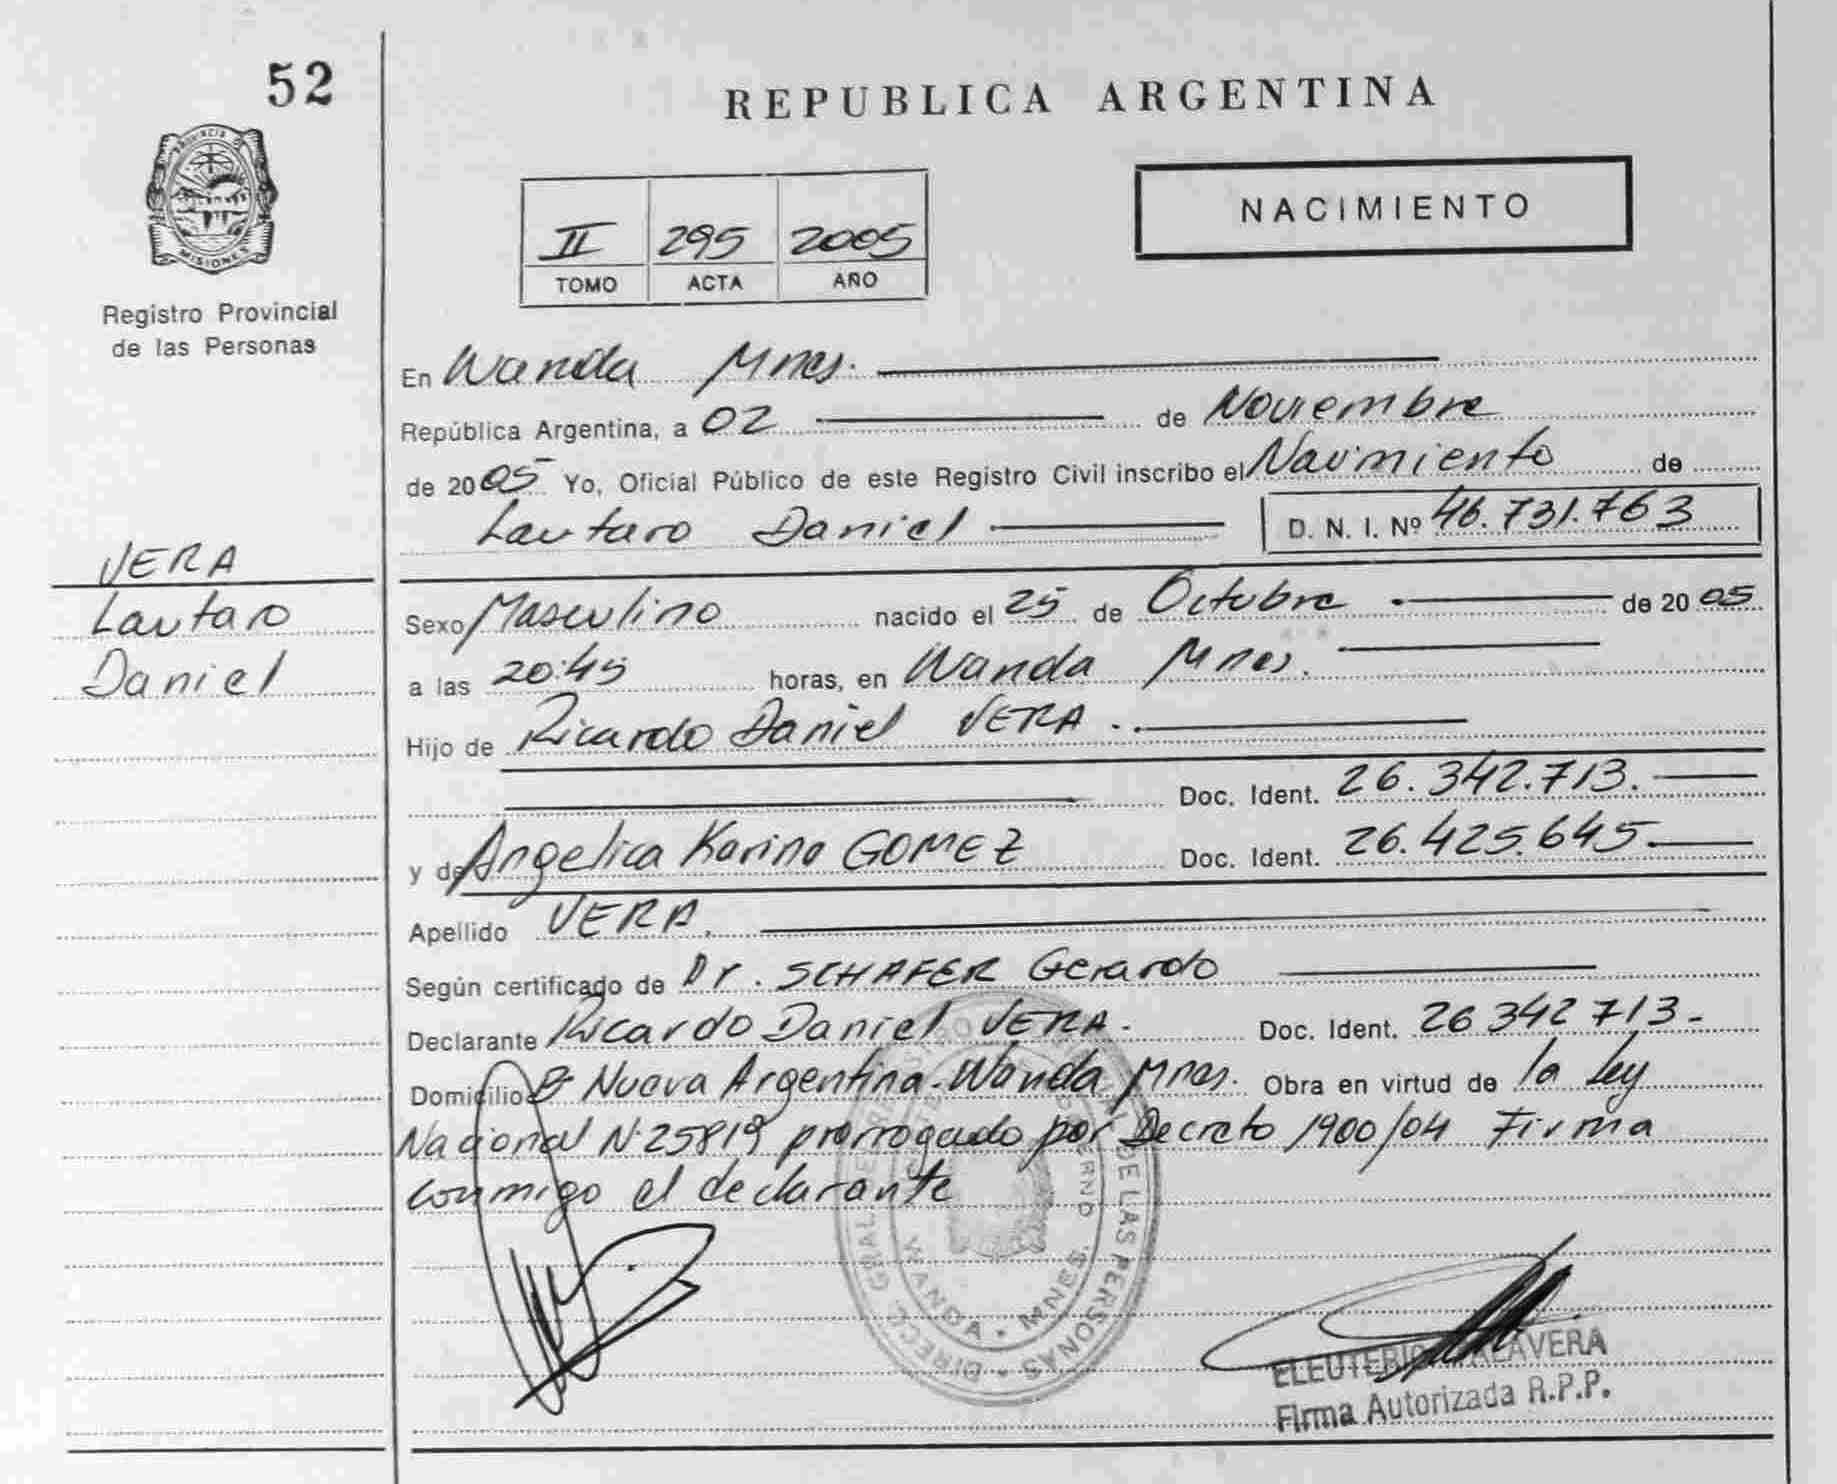 52
PROVINCIA DE
MISIONES
Registro Provincial
de las Personas
VERA
Lautaro
Daniel
REPUBLICA ARGENTINA
II 295 2005
TOMO ACTA AÑO
NACIMIENTO
En Wanda Mnes.
República Argentina, a 02 de Noviembre
de 2005 Yo, Oficial Público de este Registro Civil inscribo el Nacimiento de
Lautaro Daniel D. N. I. Nº 46.731.763
Sexo Masculino nacido el 25 de Octubre de 2005
a las 20:45 horas, en Wanda Mnes.
Hijo de Ricardo Daniel VERA.
Doc. Ident. 26.342.713.
y de Angelica Karina GOMEZ Doc. Ident. 26.425.645
Apellido VERA.
Según certificado de Dr. SCHAFER Gerardo
Declarante Ricardo Daniel VERA. Doc. Ident. 26342713-
Domicilio Bº Nueva Argentina-Wanda Mnes. Obra en virtud de la Ley
Nacional Nº25819 prorrogado por Decreto 1900/04 Firma
conmigo el declarante
DIRECC. GRAL. DE LAS PERSONAS
WANDA - MNES.
ELEUTERIO TALAVERA
Firma Autorizada R.P.P.